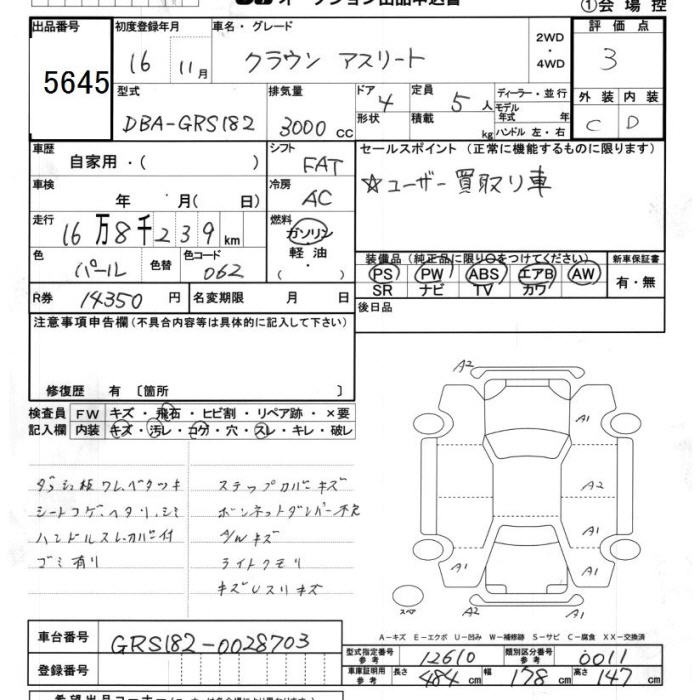 オークション出品申込書
①会場控
出品番号 初度登録年月 車名・グレード 2WD・4WD 評価点
5645 16 11月 クラウン アスリート 3
型式 排気量 ドア 4 定員 5人 ディーラー・並行 外装 内装
DBA-GRS182 3000cc 形状 積載 kg モデル年式 年 ハンドル 左・右 C D
車歴 自家用・( ) シフト FAT セールスポイント (正常に機能するものに限ります)
車検 年 月( 日) 冷房 AC ☆ユーザー買取り車
走行 16万8千239km 燃料 ガソリン・軽油・( )
色 パール 色替 色コード 062
装備品(純正品に限り○をつけてください) 新車保証書
PS PW ABS エアB AW 有・無
SR ナビ TV カワ
R券 14350円 名変期限 月 日 後日品
注意事項申告欄(不具合内容等は具体的に記入して下さい)
修復歴 有 〔箇所 〕
検査員記入欄 FW キズ・飛石・ヒビ割・リペア跡・×要
内装 キズ・汚レ・コゲ・穴・スレ・キレ・破レ
ダッシュ板ワレ、ベタツキ
シートコゲ、ヘタリ、シミ
ハンドルスレ、カバー付
ゴミ有り
ステップカバーキズ
ボンネットダンパー不良
A/Wキズ
ライトクモリ
キズUスリキズ
A2
A1
A2
A1
A1
A1
A2
スペア
A-キズ E-エクボ U-凹み W-補修跡 S-サビ C-腐食 XX-交換済
車台番号 GRS182-0028703
型式指定番号 参考 12610 類別区分番号 参考 0011
登録番号 車庫証明用 参考 長さ 484cm 幅 178cm 高さ 147cm